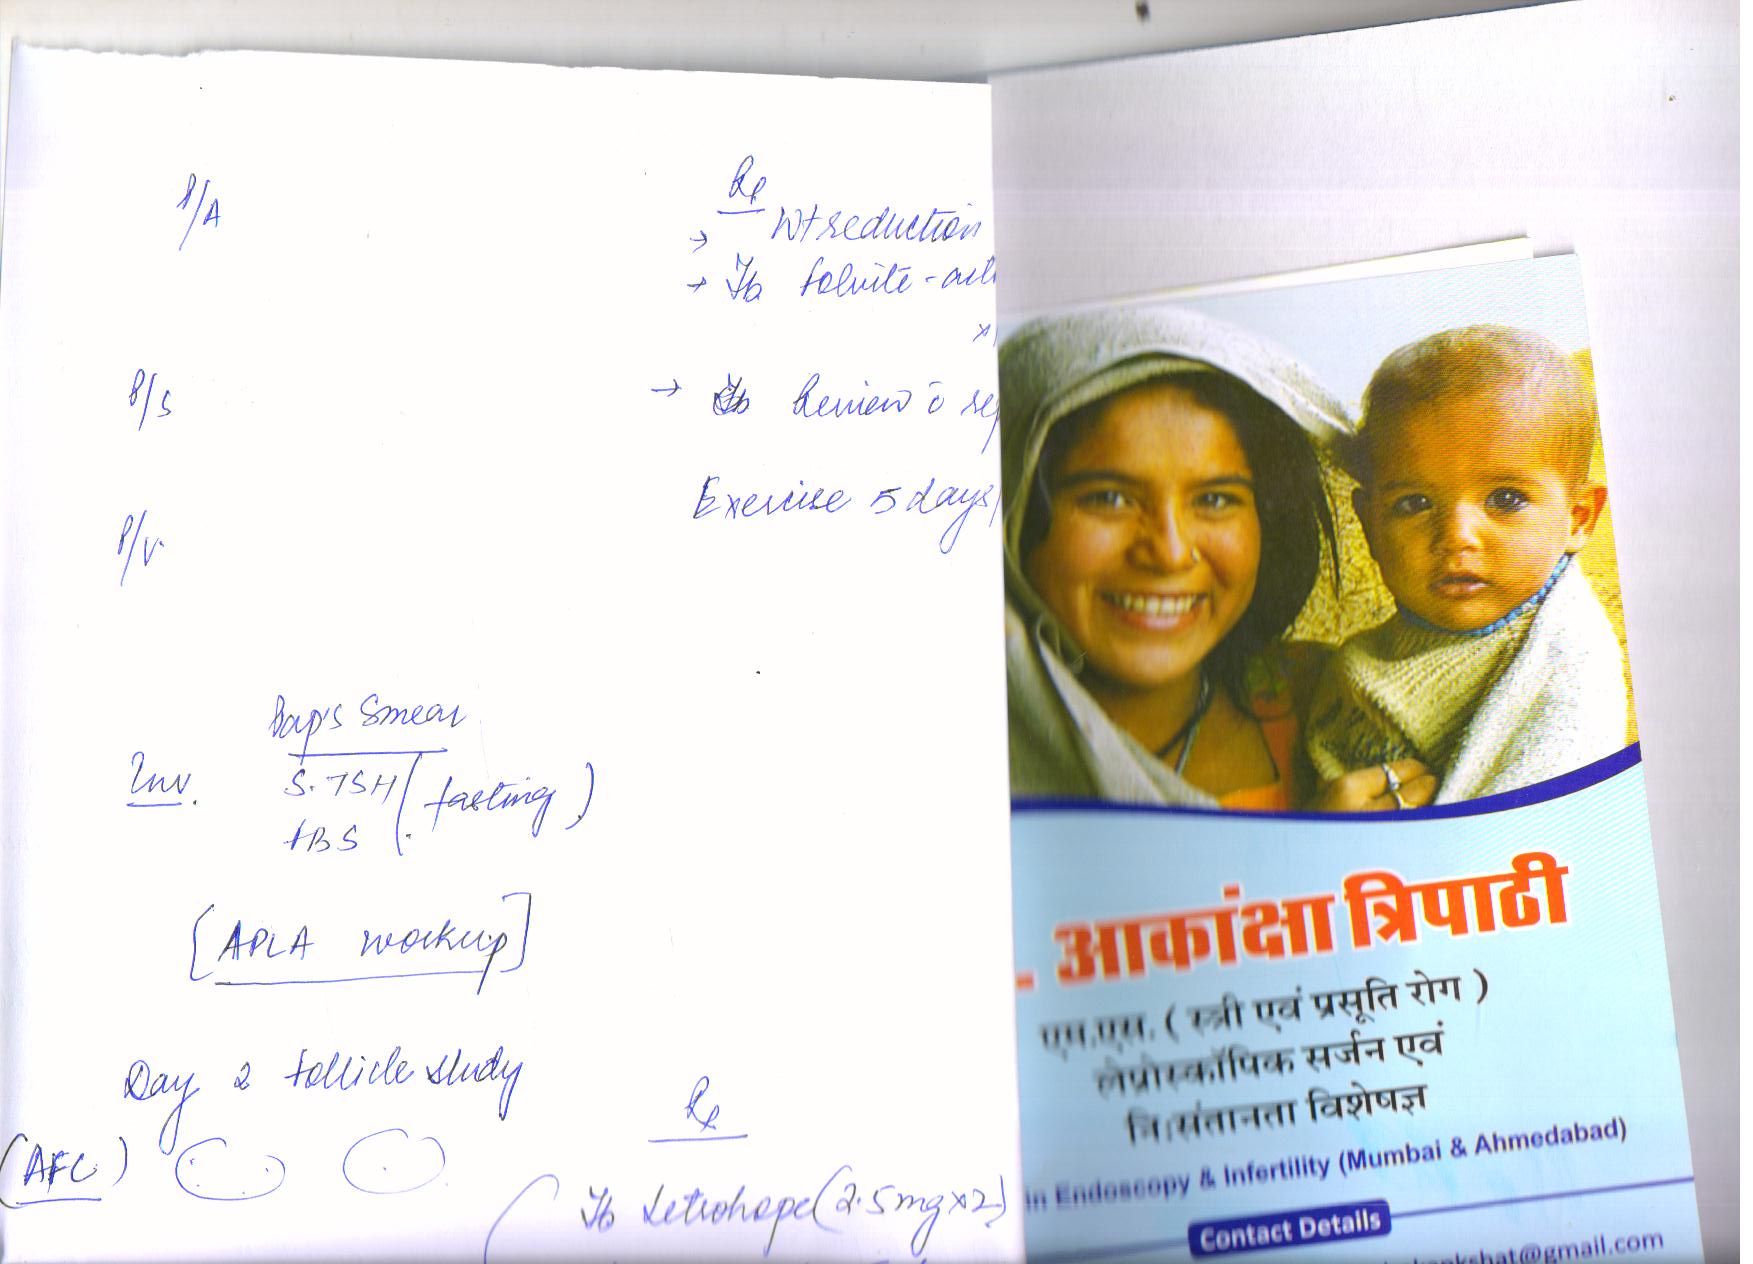 P/A
Rx
→ Wt reduction
→ Tb folvite - acti
x
→ Review c̄ rep
P/S
Exercise 5 days/
P/V
Pap's Smear
Inv. S. TSH (fasting)
FBS
[APLA workup]
Day 2 follicle study
(AFC)
Rx
Tb Letrohope (2.5mg x 2)
. आकांक्षा त्रिपाठी
एम.एस. ( स्त्री एवं प्रसूति रोग )
लेप्रोस्कॉपिक सर्जन एवं
नि:संतानता विशेषज्ञ
in Endoscopy & Infertility (Mumbai & Ahmedabad)
Contact Details
kankshat@gmail.com